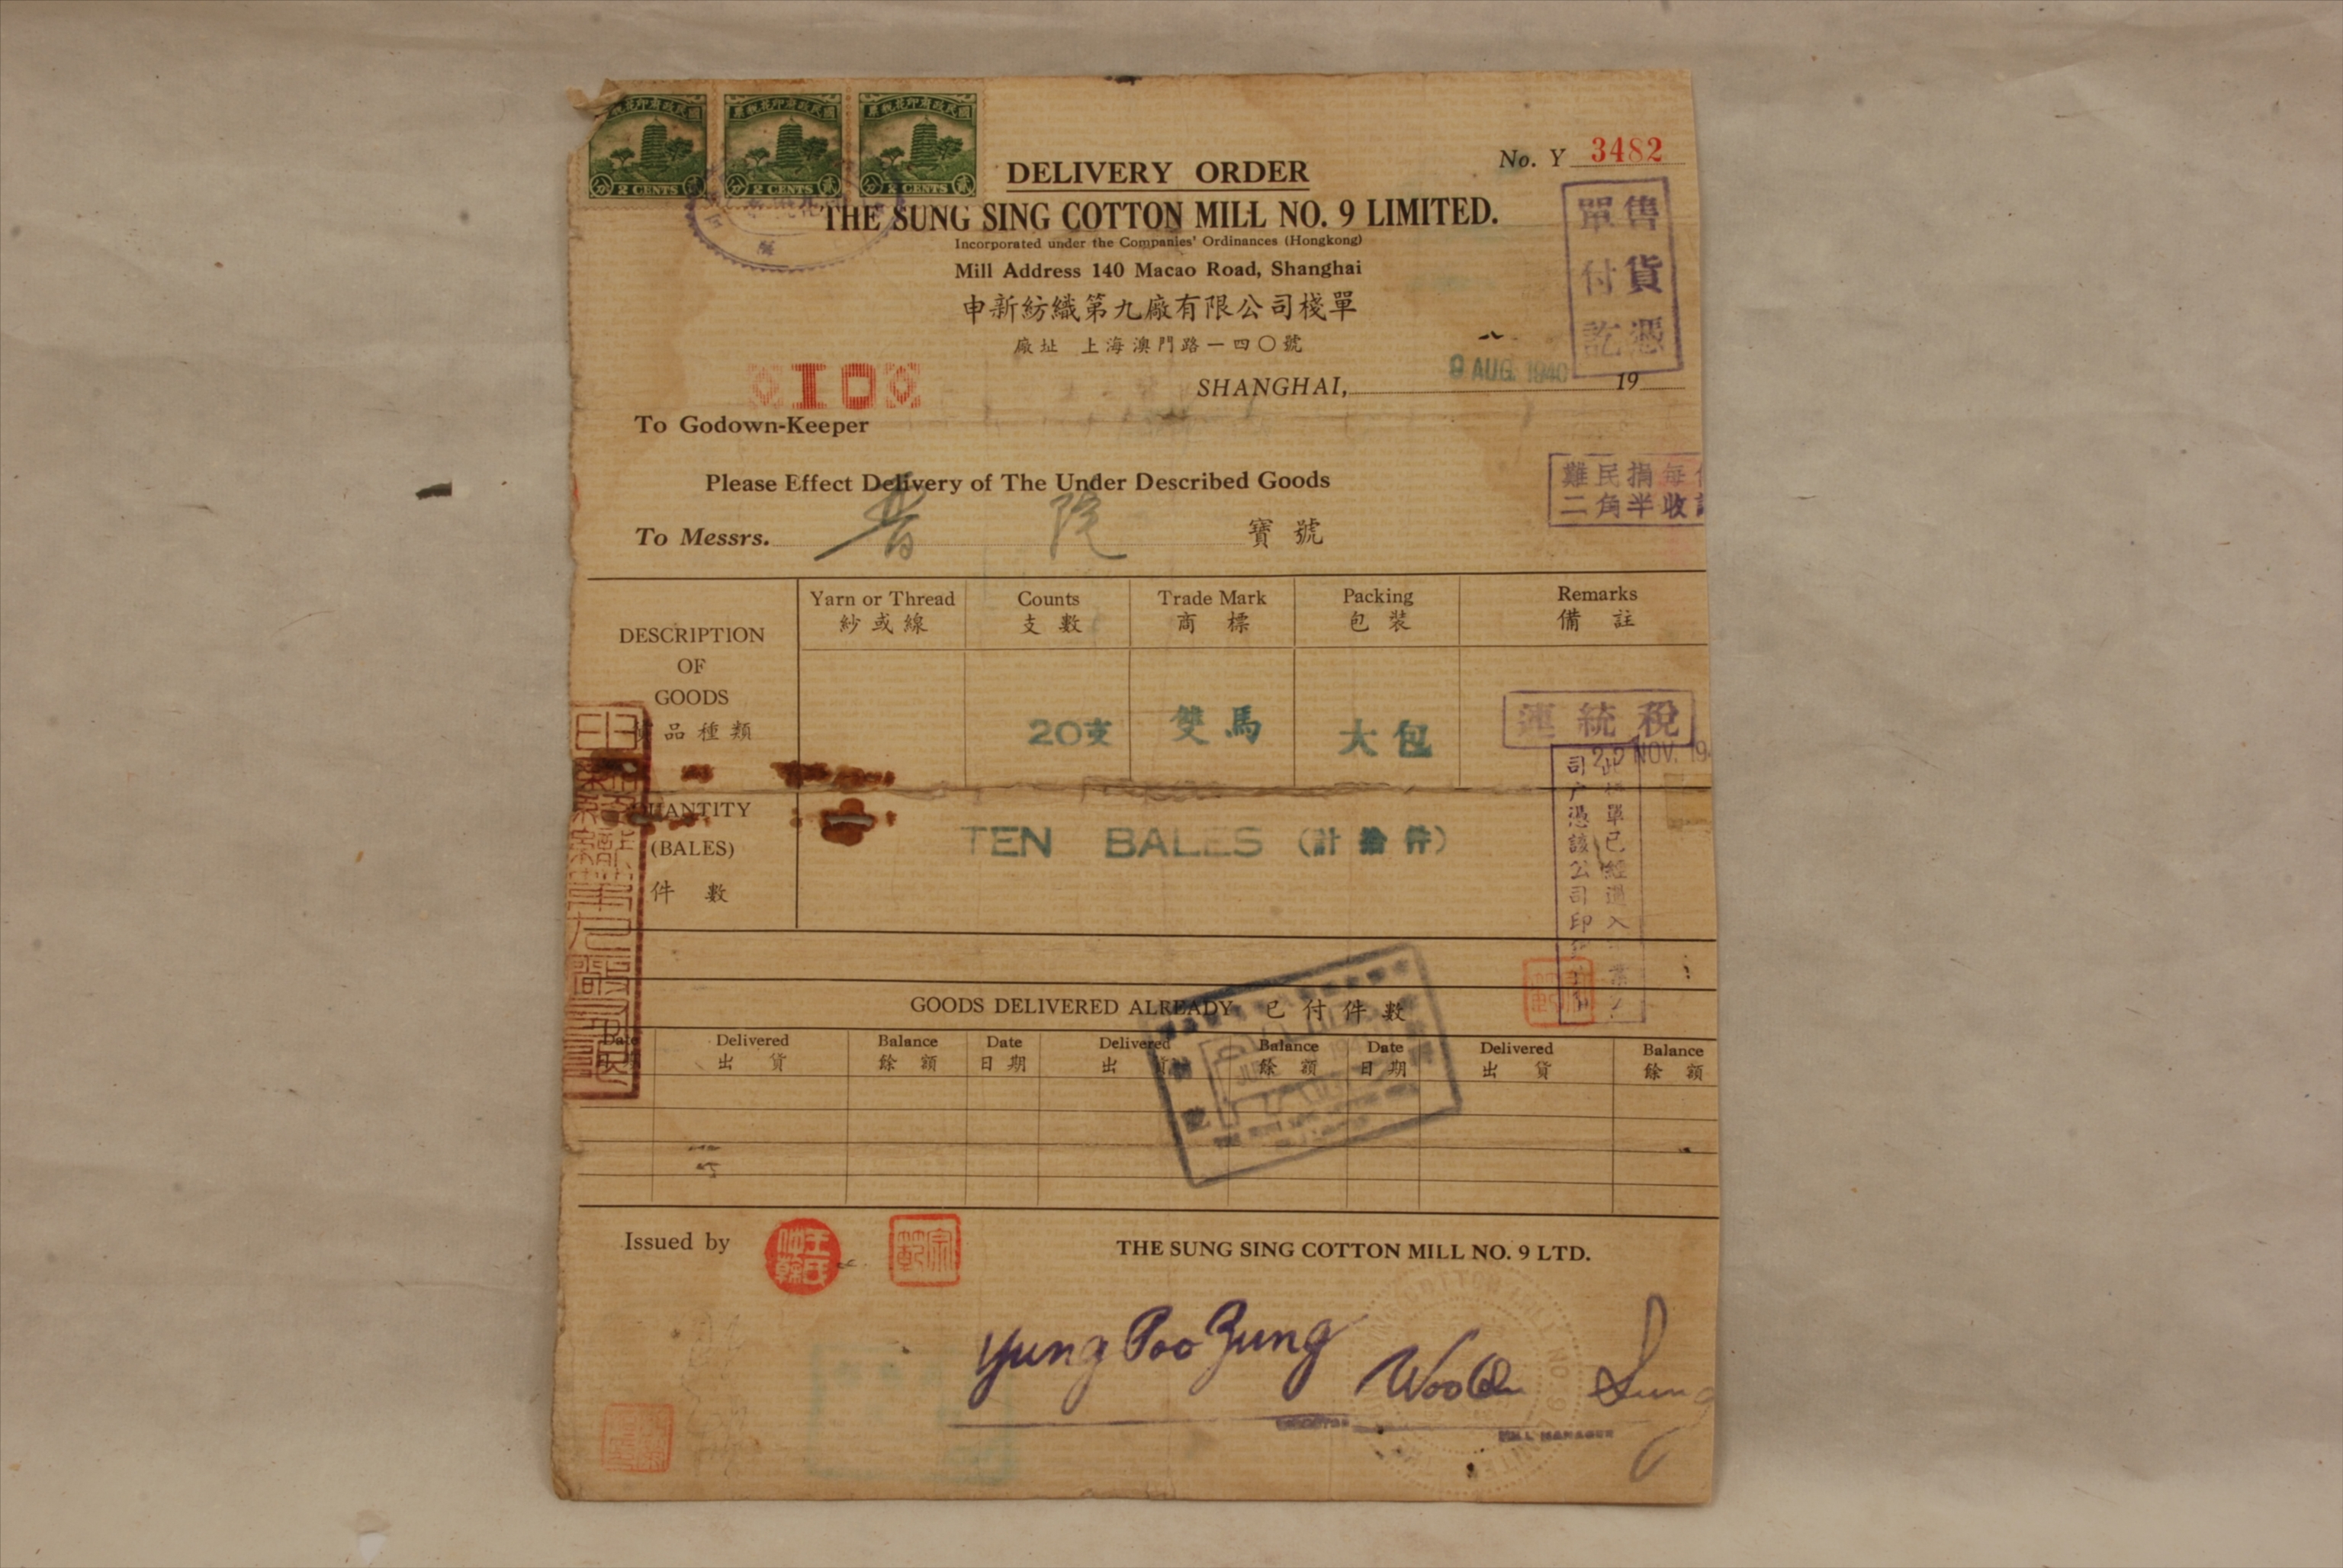 國民政府印花稅票 國民政府印花稅票 國民政府印花稅票
2 CENTS 2 CENTS 2 CENTS
No. Y 3482
DELIVERY ORDER
THE SUNG SING COTTON MILL NO. 9 LIMITED.
Incorporated under the Companies' Ordinances (Hongkong)
Mill Address 140 Macao Road, Shanghai
申新紡織第九廠有限公司棧單
廠址 上海澳門路一四〇號
售貨憑
單付訖
SHANGHAI, 9 AUG. 1940 19
10
To Godown-Keeper
Please Effect Delivery of The Under Described Goods
難民捐每
二角半收
To Messrs. 寶號
DESCRIPTION
OF
GOODS
品種類
Yarn or Thread Counts Trade Mark Packing Remarks
紗或線 支數 商標 包裝 備註
20支 雙馬 大包
連統稅
22 NOV. 19
QUANTITY
(BALES)
件數
TEN BALES (計拾件)
GOODS DELIVERED ALREADY 已付件數
Date Delivered Balance Date Delivered Balance Date Delivered Balance
出貨 餘額 日期 出貨 餘額 日期 出貨 餘額
Issued by
THE SUNG SING COTTON MILL NO. 9 LTD.
Yung Poo Zung
MILL MANAGER